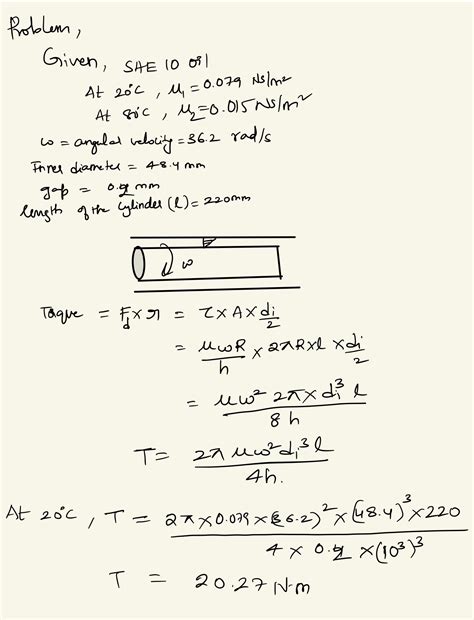 Problem,
Given, SAE 10 oil
At 20°C, μ₁ = 0.079 Ns/m²
At 80°C, μ₂ = 0.015 Ns/m²
ω = angular velocity = 36.2 rad/s
Inner diameter = 48.4 mm
gap = mm
length of the cylinder (l) = 220mm
ω
Taque = F_d × r = τ × A × di/2
= μωR/h × 2πR×l × di/2
= μω² 2π × di³ l / 8h
T = 2π μω² di³ l / 4h.
At 20°C, T = 2π × 0.079 × (36.2)² × (48.4)³ × 220 / 4 × × (10³)³
T = 20.27 N·m